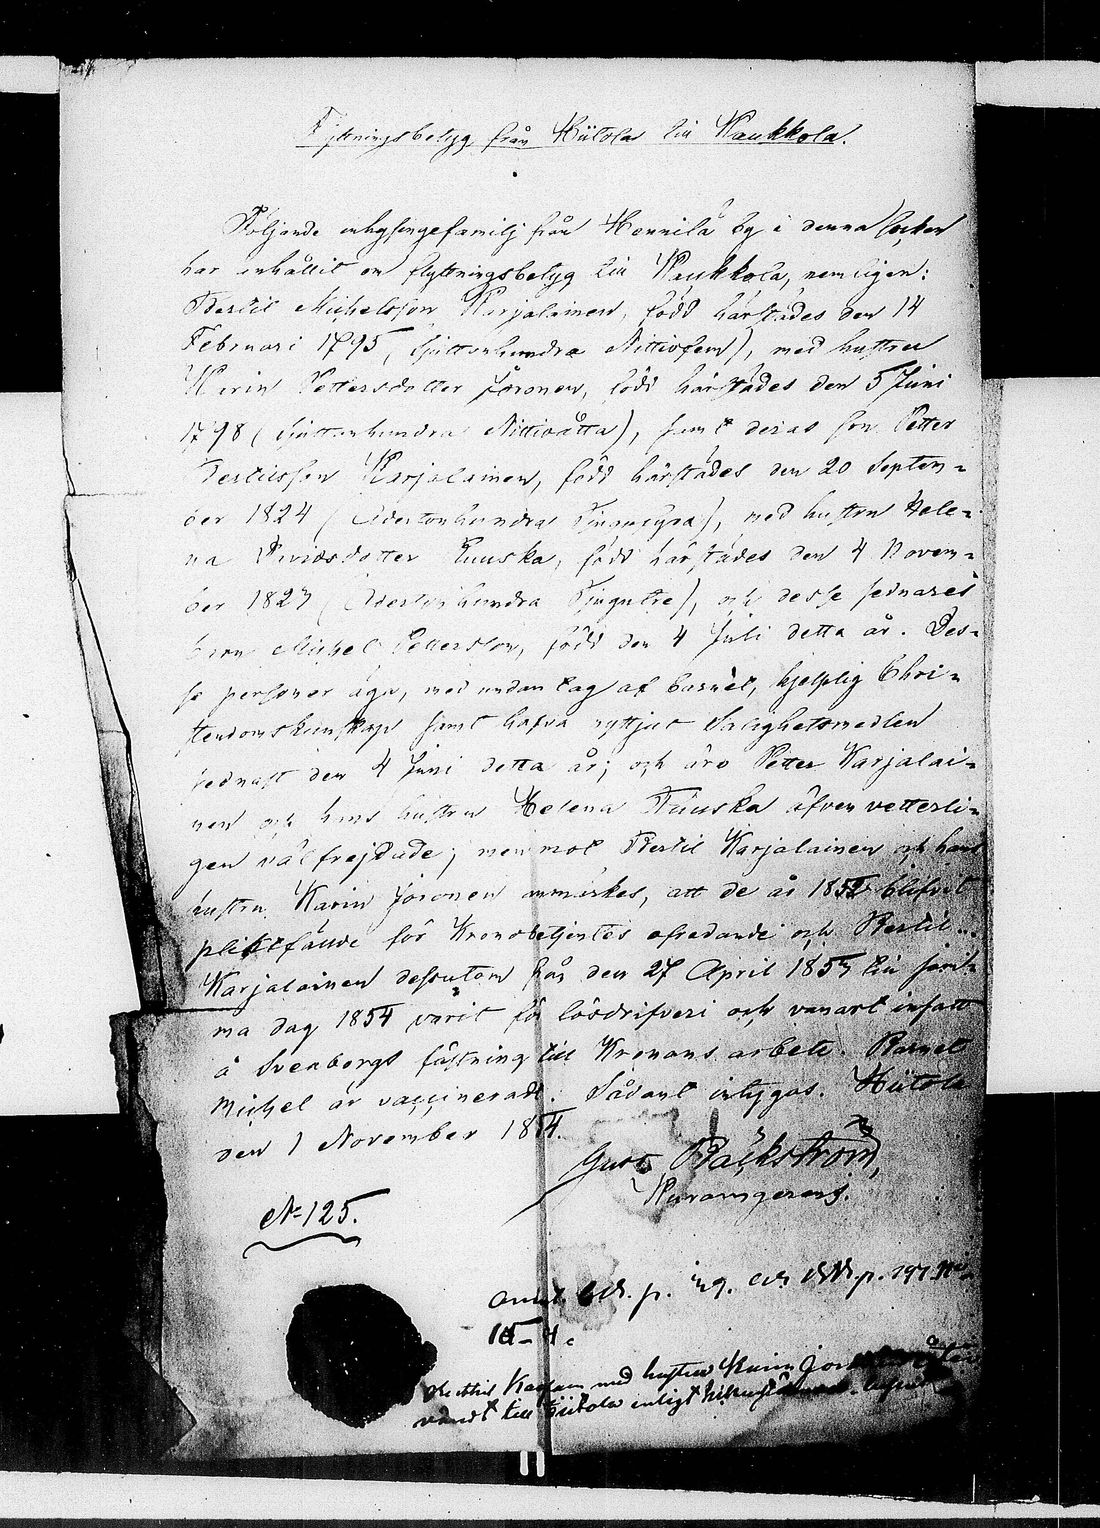 Flyttningsbetyg från Hiitola till Kaukkola.
Följande inhysingefamilj från Hennilä by i denna socken
har erhållit en flyttningsbetyg till Kaukkola, nemligen:
Bertil Michelsson Karjalainen, född härstädes den 14
Februari 1795, (sjuttonhundra Nittiofem), med hustru
Karin Pettersdotter Joronen, född härstädes den 5 Juni
1798 (sjuttonhundra Nittioåtta), samt deras son Petter
Bertilsson Karjalainen, född härstädes den 20 Septem=
ber 1824 (Adertonhundra Tjugufyra), med hustru Hele=
na Davidsdotter Tuuska, född härstädes den 4 Novem=
ber 1823 (Adertonhundra Tjugutre), och desse sednares
barn Michel Pettersson, född den 4 Juli detta år. Des=
se personer äga, med undantag af barnet, hjelplig Chri=
stendomskunskap samt hafva nyttjat Salighetsmedlen
sednast den 4 Juni detta år; och äro Petter Karjalai=
nen och hans hustru Helena Tuuska äfven vetterli=
gen välfrejdade; men mot Bertil Karjalainen och hans
hustru Karin Joronen anmärkes, att de år 1852 blifvit
pliktfällde för Kronobetjentes ofredande och Bertil
Karjalainen dessutom från den 27 April 1853 till sam=
ma dag 1854 varit för lösdrifveri och vanart insatt
å Sveaborgs fästning till Kronans arbete. Barnet
Michel är vaccineradt. Sådant intygas. Hiitola
den 1 November 1854.
Gust. Bäckström,
Kyrkoherde
N:125.
p. 29. p. 197
med hustru Karin
till Hiitola enligt